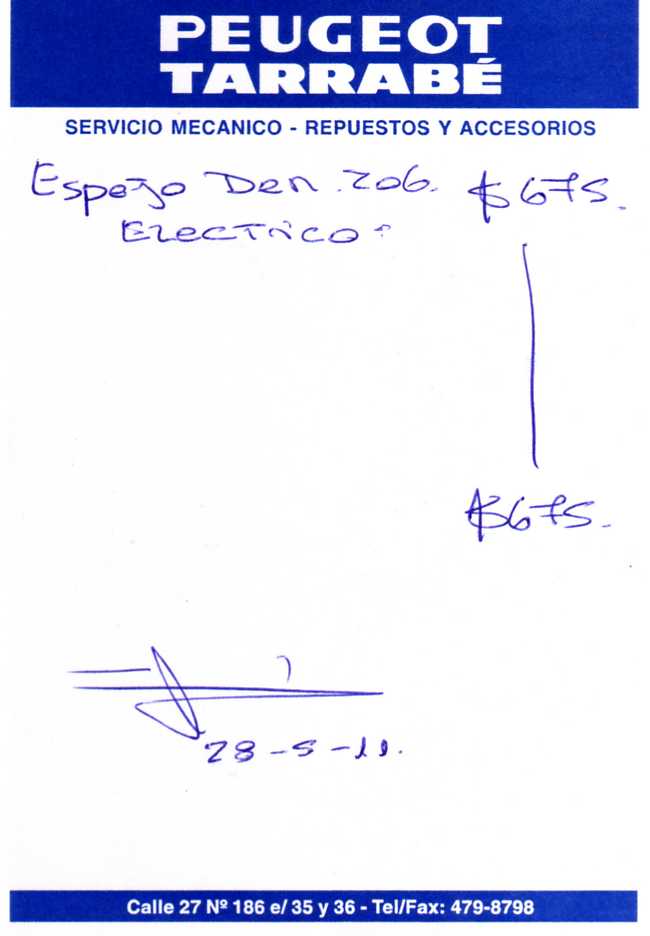 PEUGEOT
TARRABÉ
SERVICIO MECANICO - REPUESTOS Y ACCESORIOS
Espejo Der. 206. $675.
ELECTRICO
$675.
28-5-11.
Calle 27 Nº 186 e/ 35 y 36 - Tel/Fax: 479-8798